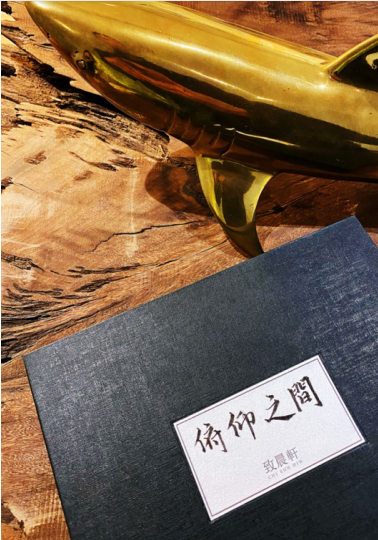 俯仰之間
致晨軒